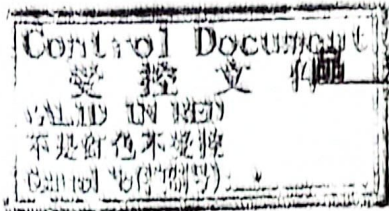 Control Document
受控文件
VALID IN RED
不是红色不受控
Control No(控制号):